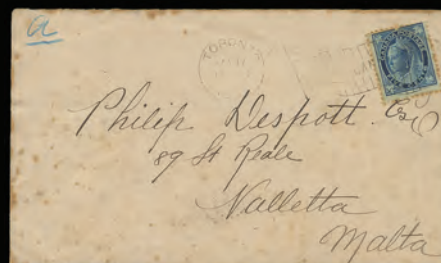 a
TORONTO
Philip Despott. Esq
89 St Reale
Valletta
Malta